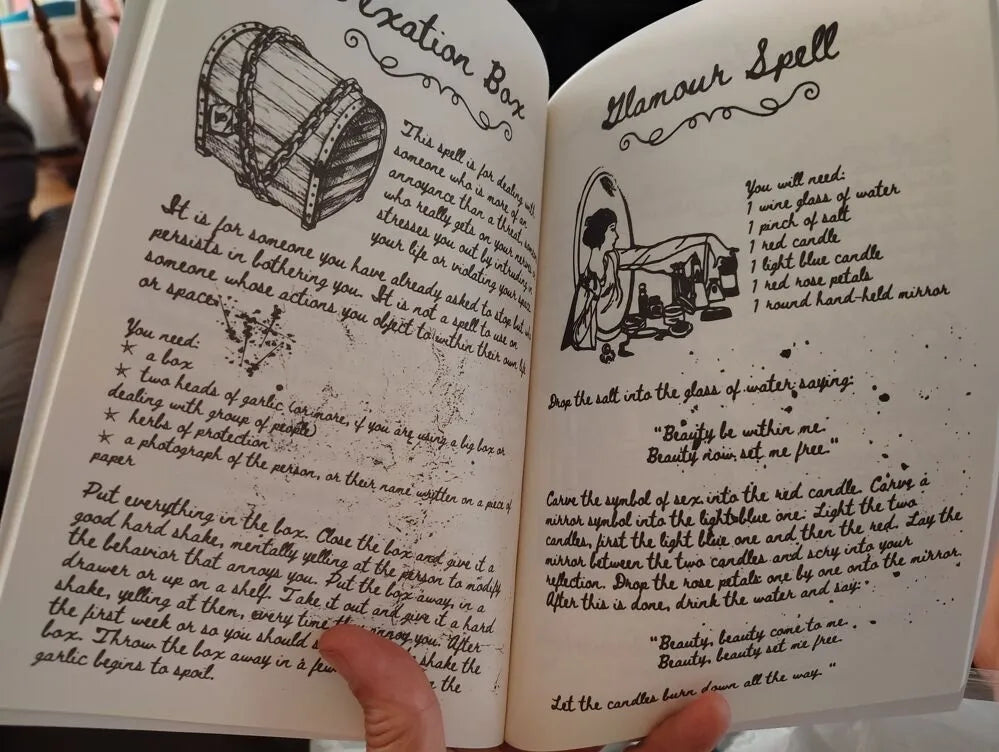 Vexation Box
This spell is for dealing with
someone who is more of an
annoyance than a threat,
who really gets on your nerves or
stresses you out by intruding in
your life or violating your space.
It is for someone you have already asked to stop but who
persists in bothering you. It is not a spell to use on
someone whose actions you object to within their own life
or space.
You need:
* a box
* two heads of garlic (or more, if you are using a big box or
dealing with group of people)
* herbs of protection
* a photograph of the person, or their name written on a piece of
paper
Put everything in the box. Close the box and give it a
good hard shake, mentally yelling at the person to modify
the behavior that annoys you. Put the box away, in a
drawer or up on a shelf. Take it out and give it a hard
shake, yelling at them, every time they annoy you. After
the first week or so you should shake the
box. Throw the box away in a few the
garlic begins to spoil.
Glamour Spell
You will need:
1 wine glass of water
1 pinch of salt
1 red candle
1 light blue candle
1 red rose petals
1 round hand-held mirror
Drop the salt into the glass of water saying:
"Beauty be within me.
Beauty now set me free."
Carve the symbol of sex into the red candle. Carve a
mirror symbol into the light blue one. Light the two
candles, first the light blue one and then the red. Lay the
mirror between the two candles and scry into your
reflection. Drop the rose petals one by one onto the mirror.
After this is done, drink the water and say:
"Beauty, beauty come to me.
Beauty, beauty set me free.
Let the candles burn down all the way."